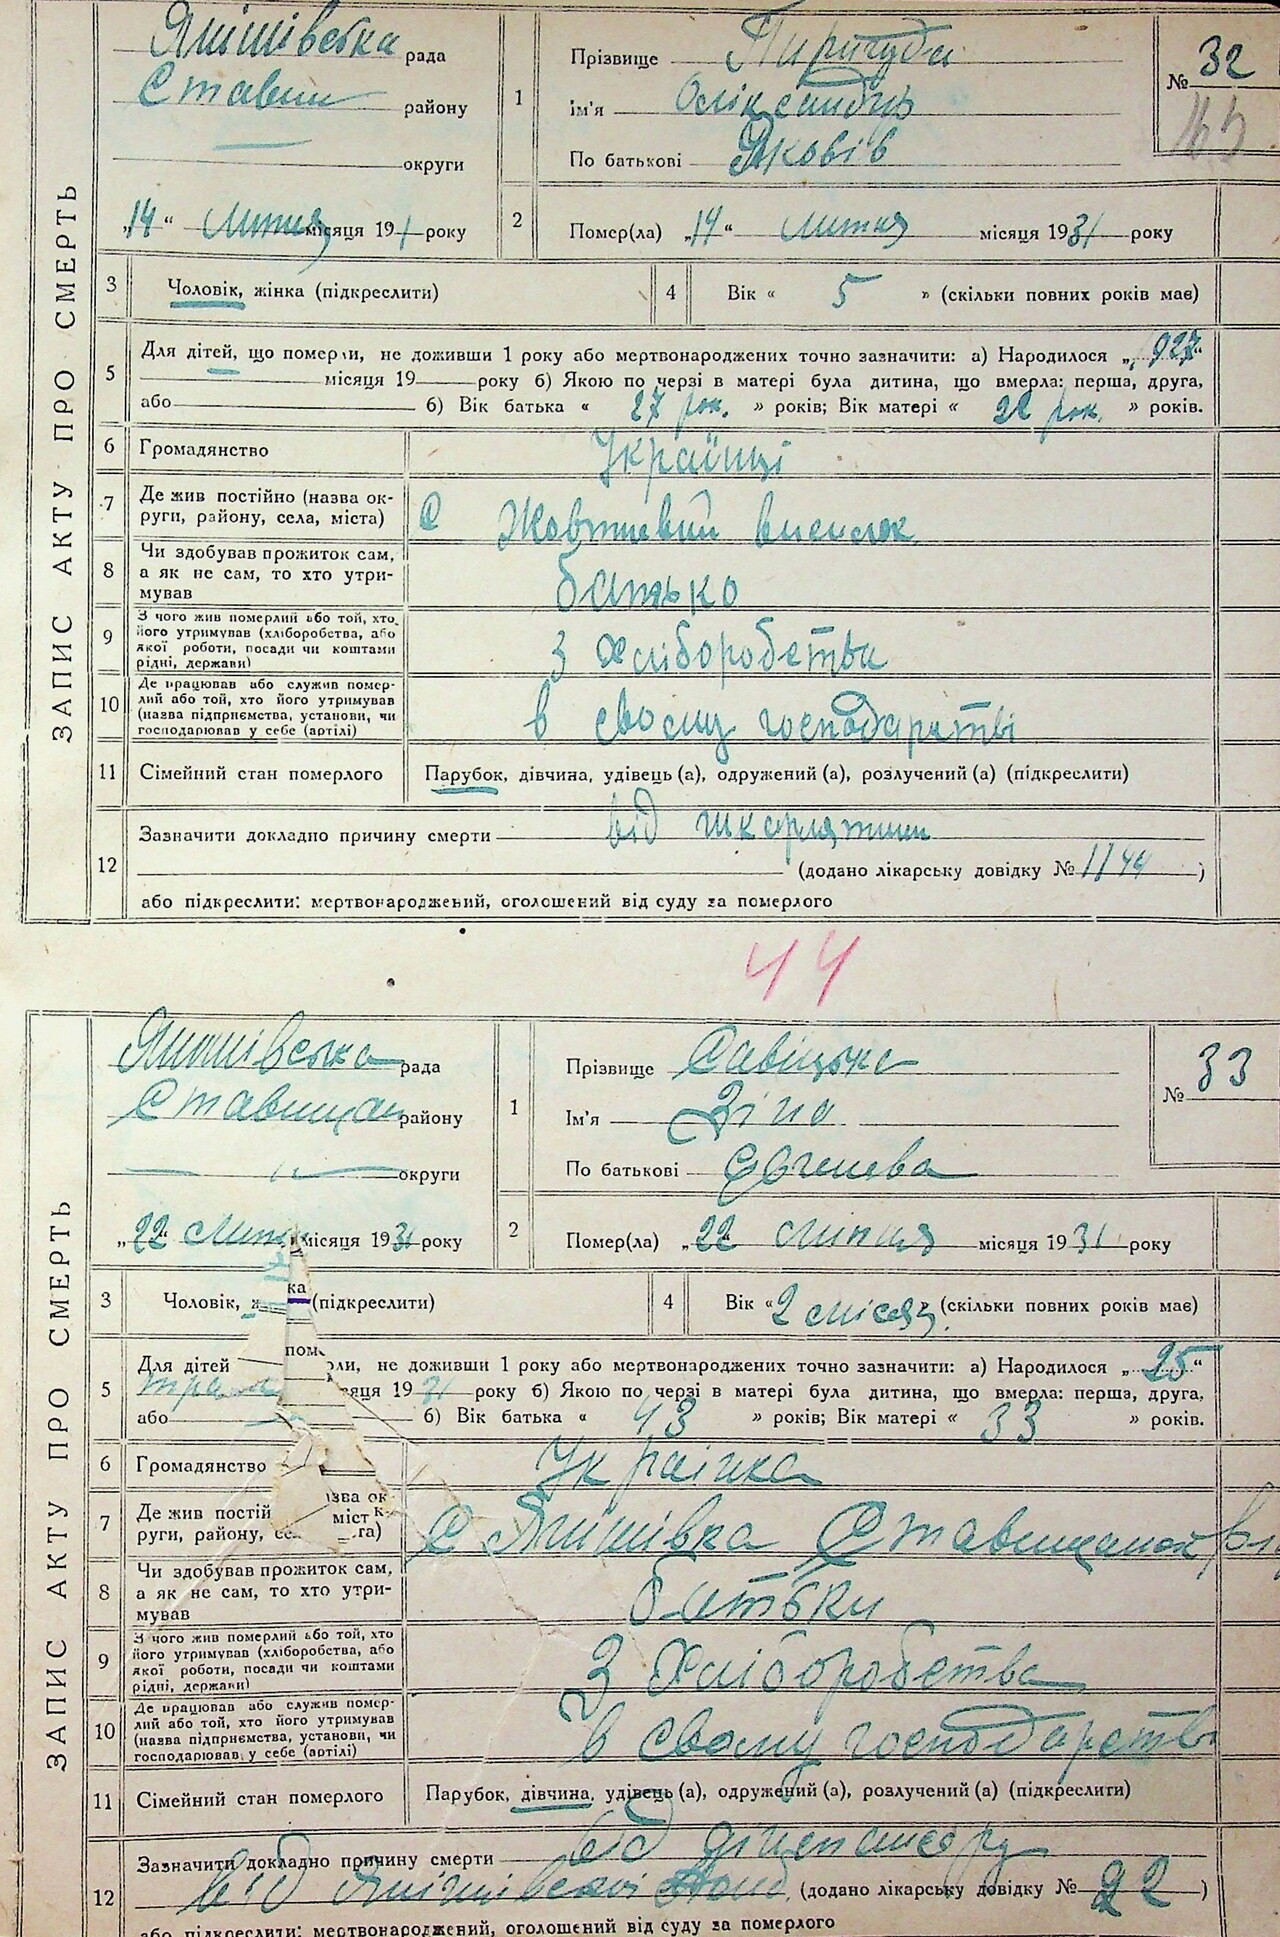 ЗАПИС АКТУ ПРО СМЕРТЬ
Янишівська рада
Ставищ району
округи
„14“ липня місяця 1931 року
1
Прізвище
Ім'я Оліксандер
По батькові Яковів
№ 32
2 Помер(ла) „14“ липня місяця 1931 року
3 Чоловік, жінка (підкреслити)
4 Вік « 5 » (скільки повних років має)
5 Для дітей, що померли, не доживши 1 року або мертвонароджених точно зазначити: а) Народилося „ 927 “
місяця 19 року б) Якою по черзі в матері була дитина, що вмерла: перша, друга,
або б) Вік батька « 27 рок. » років; Вік матері « 22 рок. » років.
6 Громадянство Українці
7 Де жив постійно (назва ок-
руги, району, села, міста)
С Жовтневий виселок
8 Чи здобував прожиток сам,
а як не сам, то хто утри-
мував
батько
9 З чого жив померлий або той, хто
його утримував (хліборобства, або
якої роботи, посади чи коштами
рідні, держави)
З хліборобства
10 Де працював або служив помер-
лий або той, хто його утримував
(назва підприємства, установи, чи
господарював у себе (артілі)
в своєму господарстві
11 Сімейний стан померлого Парубок, дівчина, удівець (а), одружений (а), розлучений (а) (підкреслити)
12 Зазначити докладно причину смерти від шкарлятини
(додано лікарську довідку № 1144 )
або підкреслити: мертвонароджений, оголошений від суду за померлого
44
ЗАПИС АКТУ ПРО СМЕРТЬ
Янишівська рада
Ставищан району
округи
„22“ липн місяця 1931 року
1
Прізвище Савіцька
Ім'я Зіна
По батькові Євгенева
№ 33
2 Помер(ла) „22“ липня місяця 1931 року
3 Чоловік, ж ка (підкреслити)
4 Вік « 2 місяц » (скільки повних років має)
5 Для дітей пом рли, не доживши 1 року або мертвонароджених точно зазначити: а) Народилося „ 25 “
трав сяця 1931 року б) Якою по черзі в матері була дитина, що вмерла: перша, друга,
або б) Вік батька « 43 » років; Вік матері « 33 » років.
6 Громадянство Українка
7 Де жив постій зва ок-
руги, району, се міст та)
С Янишівка
8 Чи здобував прожиток сам,
а як не сам, то хто утри-
мував
батьки
9 З чого жив померлий або той, хто
його утримував (хліборобства, або
якої роботи, посади чи коштами
рідні, держави)
З хліборобства
10 Де працював або служив помер-
лий або той, хто його утримував
(назва підприємства, установи, чи
господарював у себе (артілі)
в своєму господарстві
11 Сімейний стан померлого Парубок, дівчина, удівець (а), одружений (а), розлучений (а) (підкреслити)
12 Зазначити докладно причину смерти від
від Янишівської (додано лікарську довідку № 22 )
або підкреслити: мертвонароджений, оголошений від суду за померлого